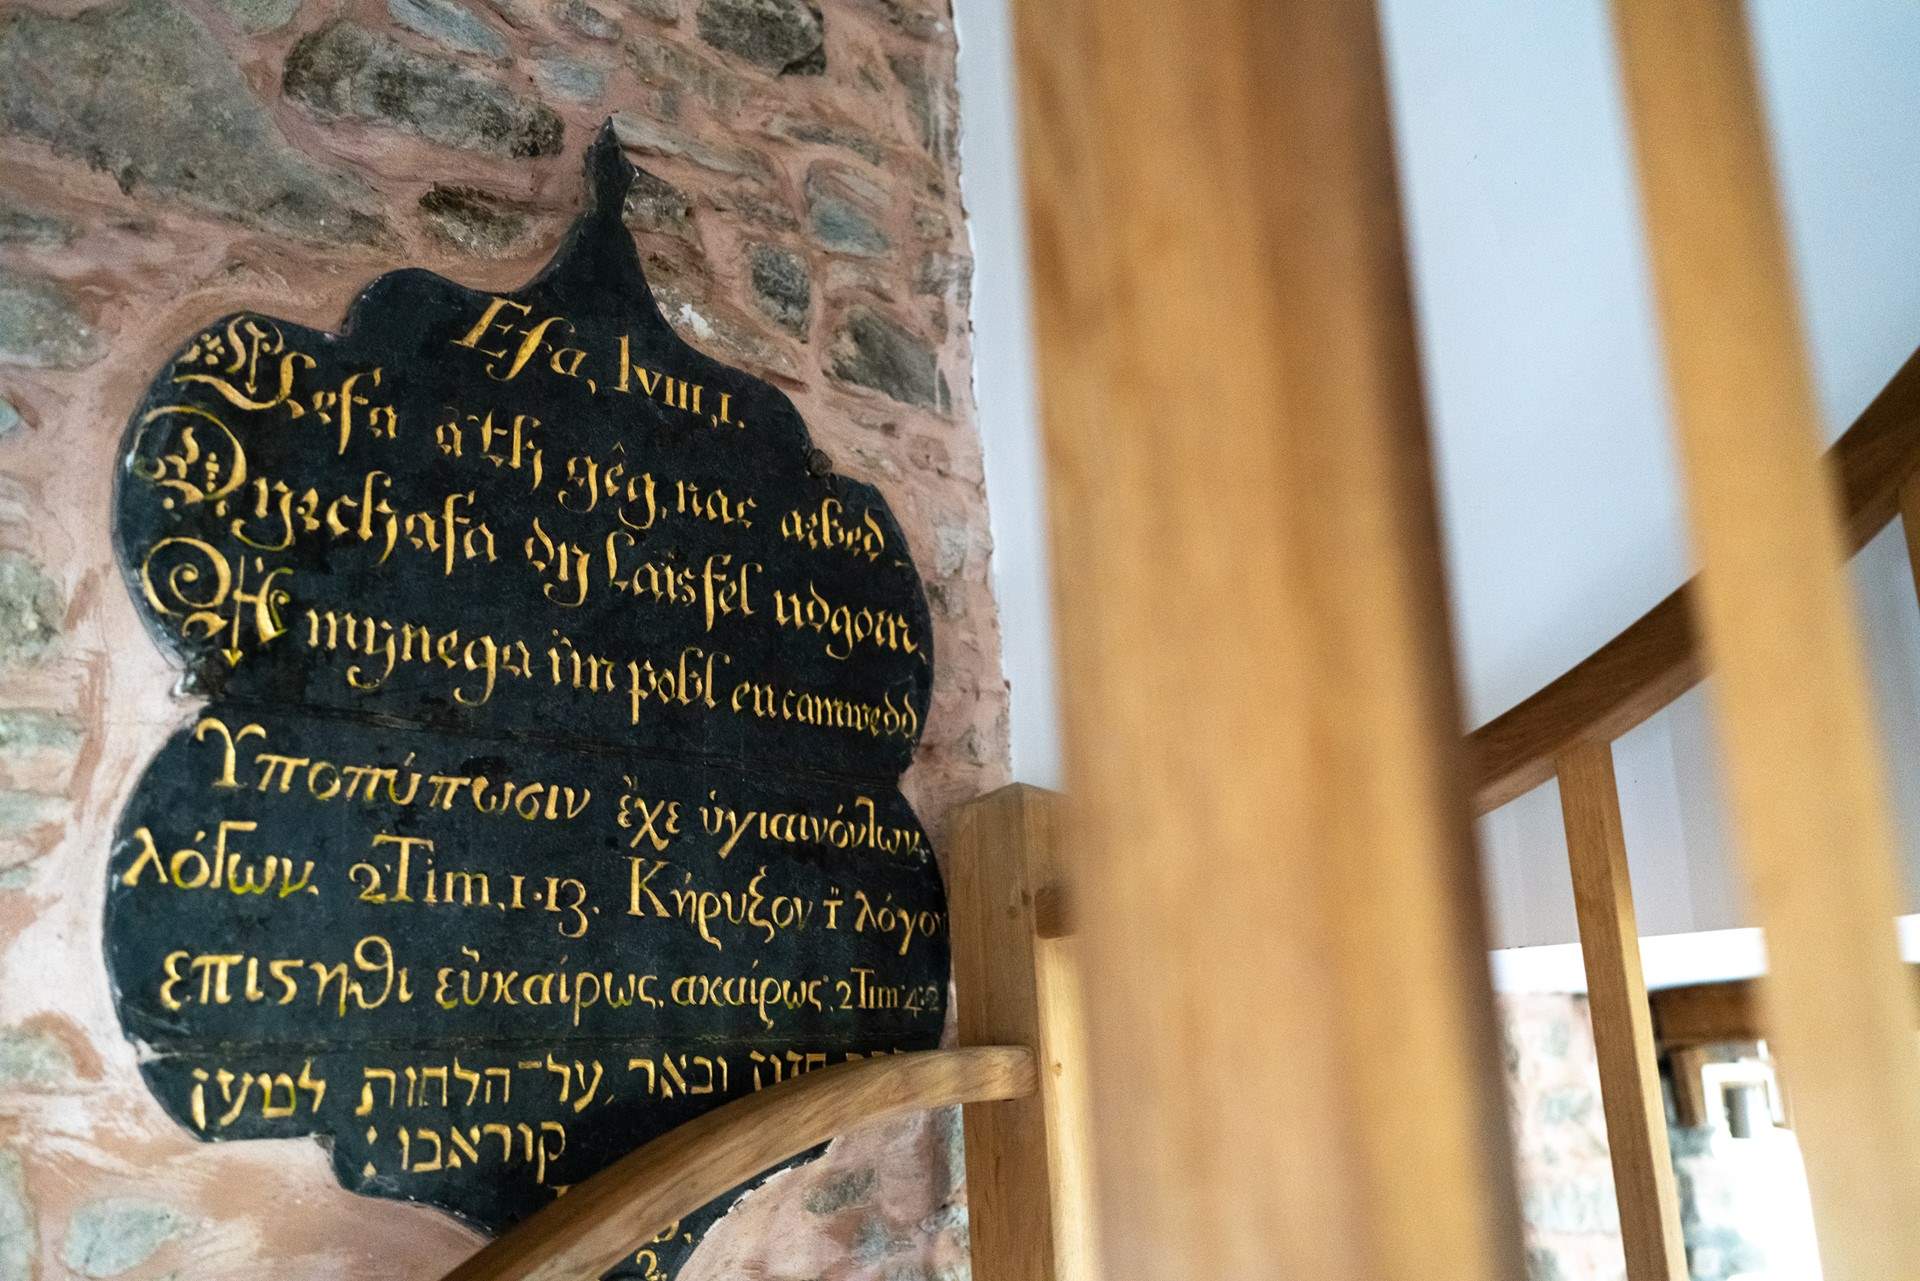 Esa, lviii,i.
Llefa a'th gêg, nac arbed
Dyrchafa dy Lais fel udgorn,
A mynega i'm pobl eu camwedd
Υποτύπωσιν ἔχε ὑγιαινόντων
λόγων. 2 Tim, 1.13. Κήρυξον τ̈ λόγον
επιςηθι εὐκαίρως, ακαίρως, 2 Tim 4:2
חזון ובאר, על־הלחות למען
קוראבו :
2.